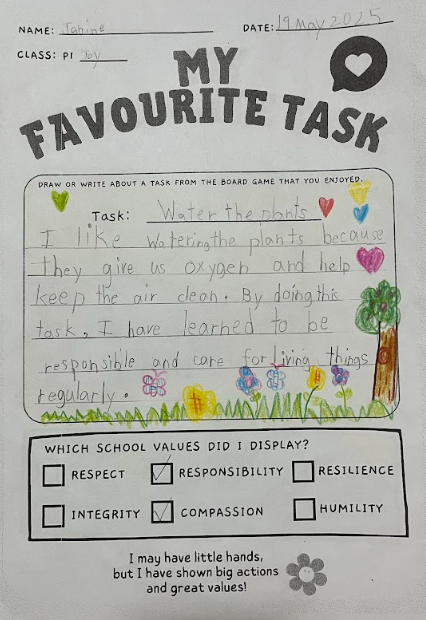 NAME: Jahine
DATE: 19 May 2025
CLASS: P1 Joy
MY
FAVOURITE TASK
DRAW OR WRITE ABOUT A TASK FROM THE BOARD GAME THAT YOU ENJOYED.
Task: Water the plants
I like watering the plants because
they give us oxygen and help
keep the air clean. By doing this
task, I have learned to be
responsible and care for living things
regularly.
WHICH SCHOOL VALUES DID I DISPLAY?
RESPECT RESPONSIBILITY RESILIENCE
INTEGRITY COMPASSION HUMILITY
I may have little hands,
but I have shown big actions
and great values!